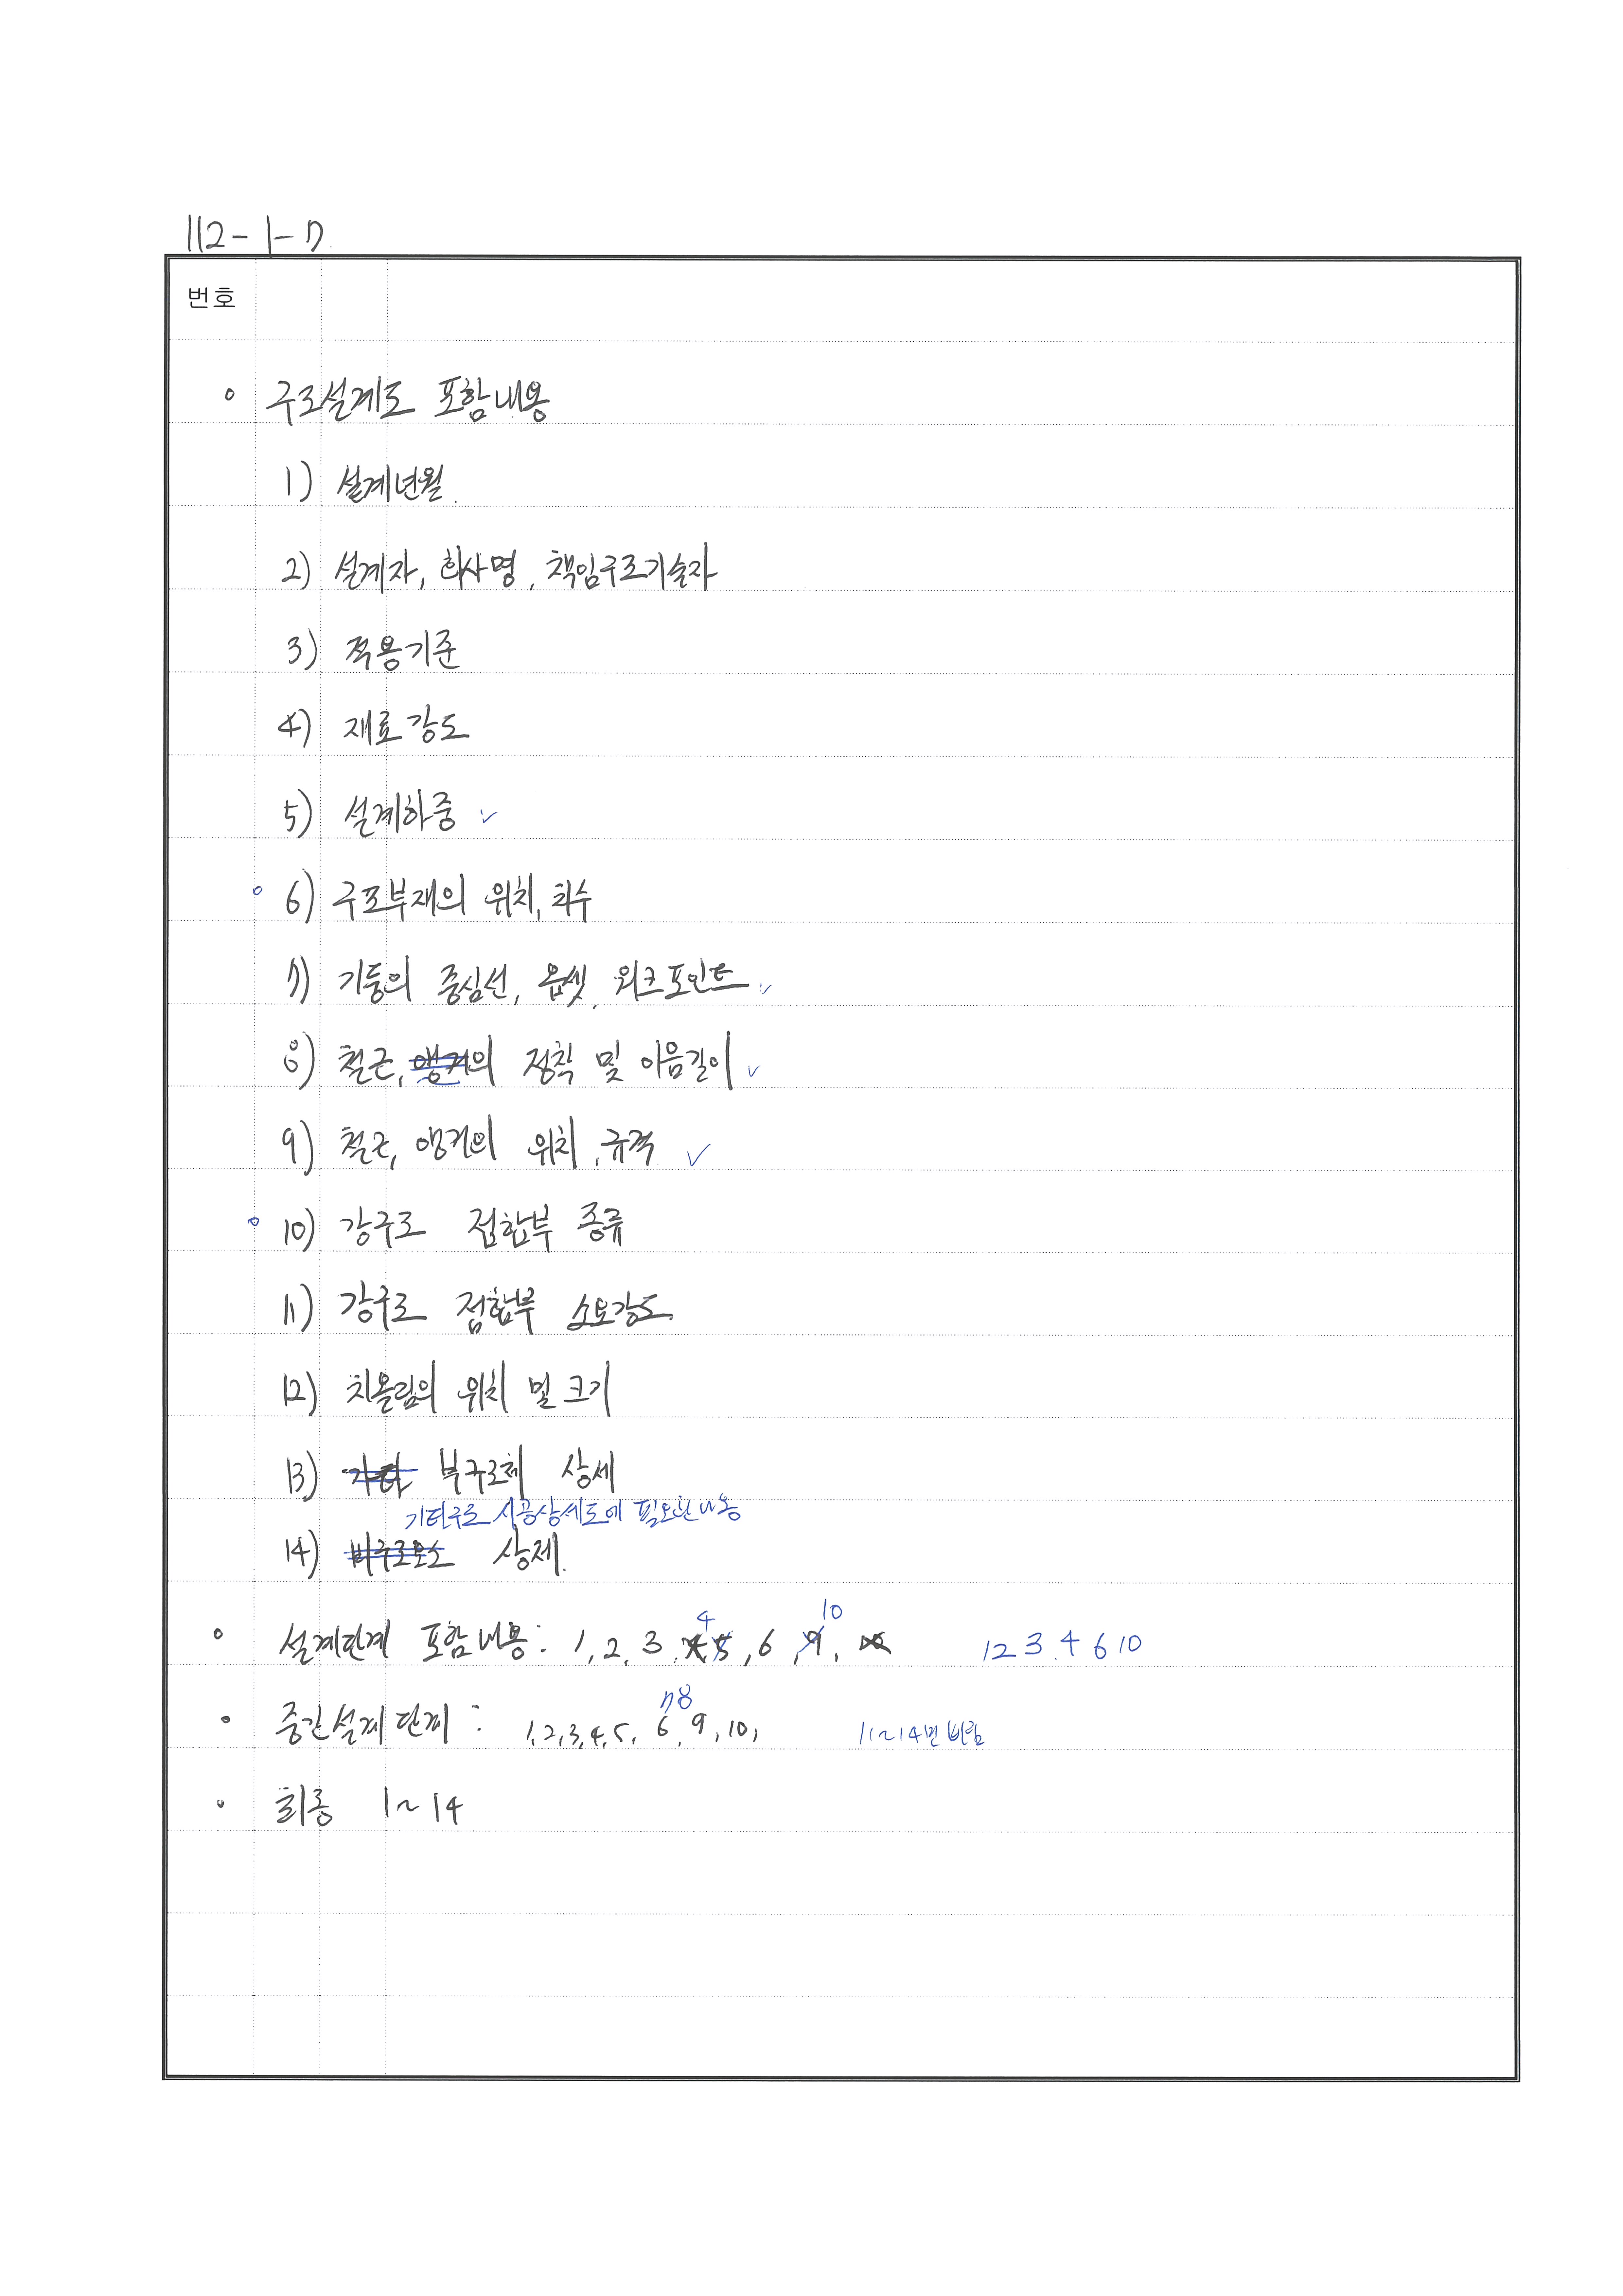 112-1-7.
번호
o 구조설계도 포함내용
1) 설계년월.
2) 설계자, 회사명, 책임구조기술자
3) 적용기준
4) 재료강도
5) 설계하중 ✓
o 6) 구조부재의 위치, 치수
7) 기둥의 중심선, 옵셋, 워크포인트 ✓
8) 철근, 앵커의 정착 및 이음길이 ✓
9) 철근, 앵커의 위치, 규격 ✓
o 10) 강구조 접합부 종류
11) 강구조 접합부 소요강도
12) 치올림의 위치 및 크기
13) 기타 부구조체 상세
기타구조 시공상세도에 필요한 내용
14) 비구조요소 상세.
4 10
o 설계단계 포함내용: 1, 2, 3, 5, 6, 9, 12 3. 4 6 10
7 8
• 중간설계단계: 1, 2, 3, 4, 5, 6, 9, 10, 11~14만 빠짐
• 최종 1~14